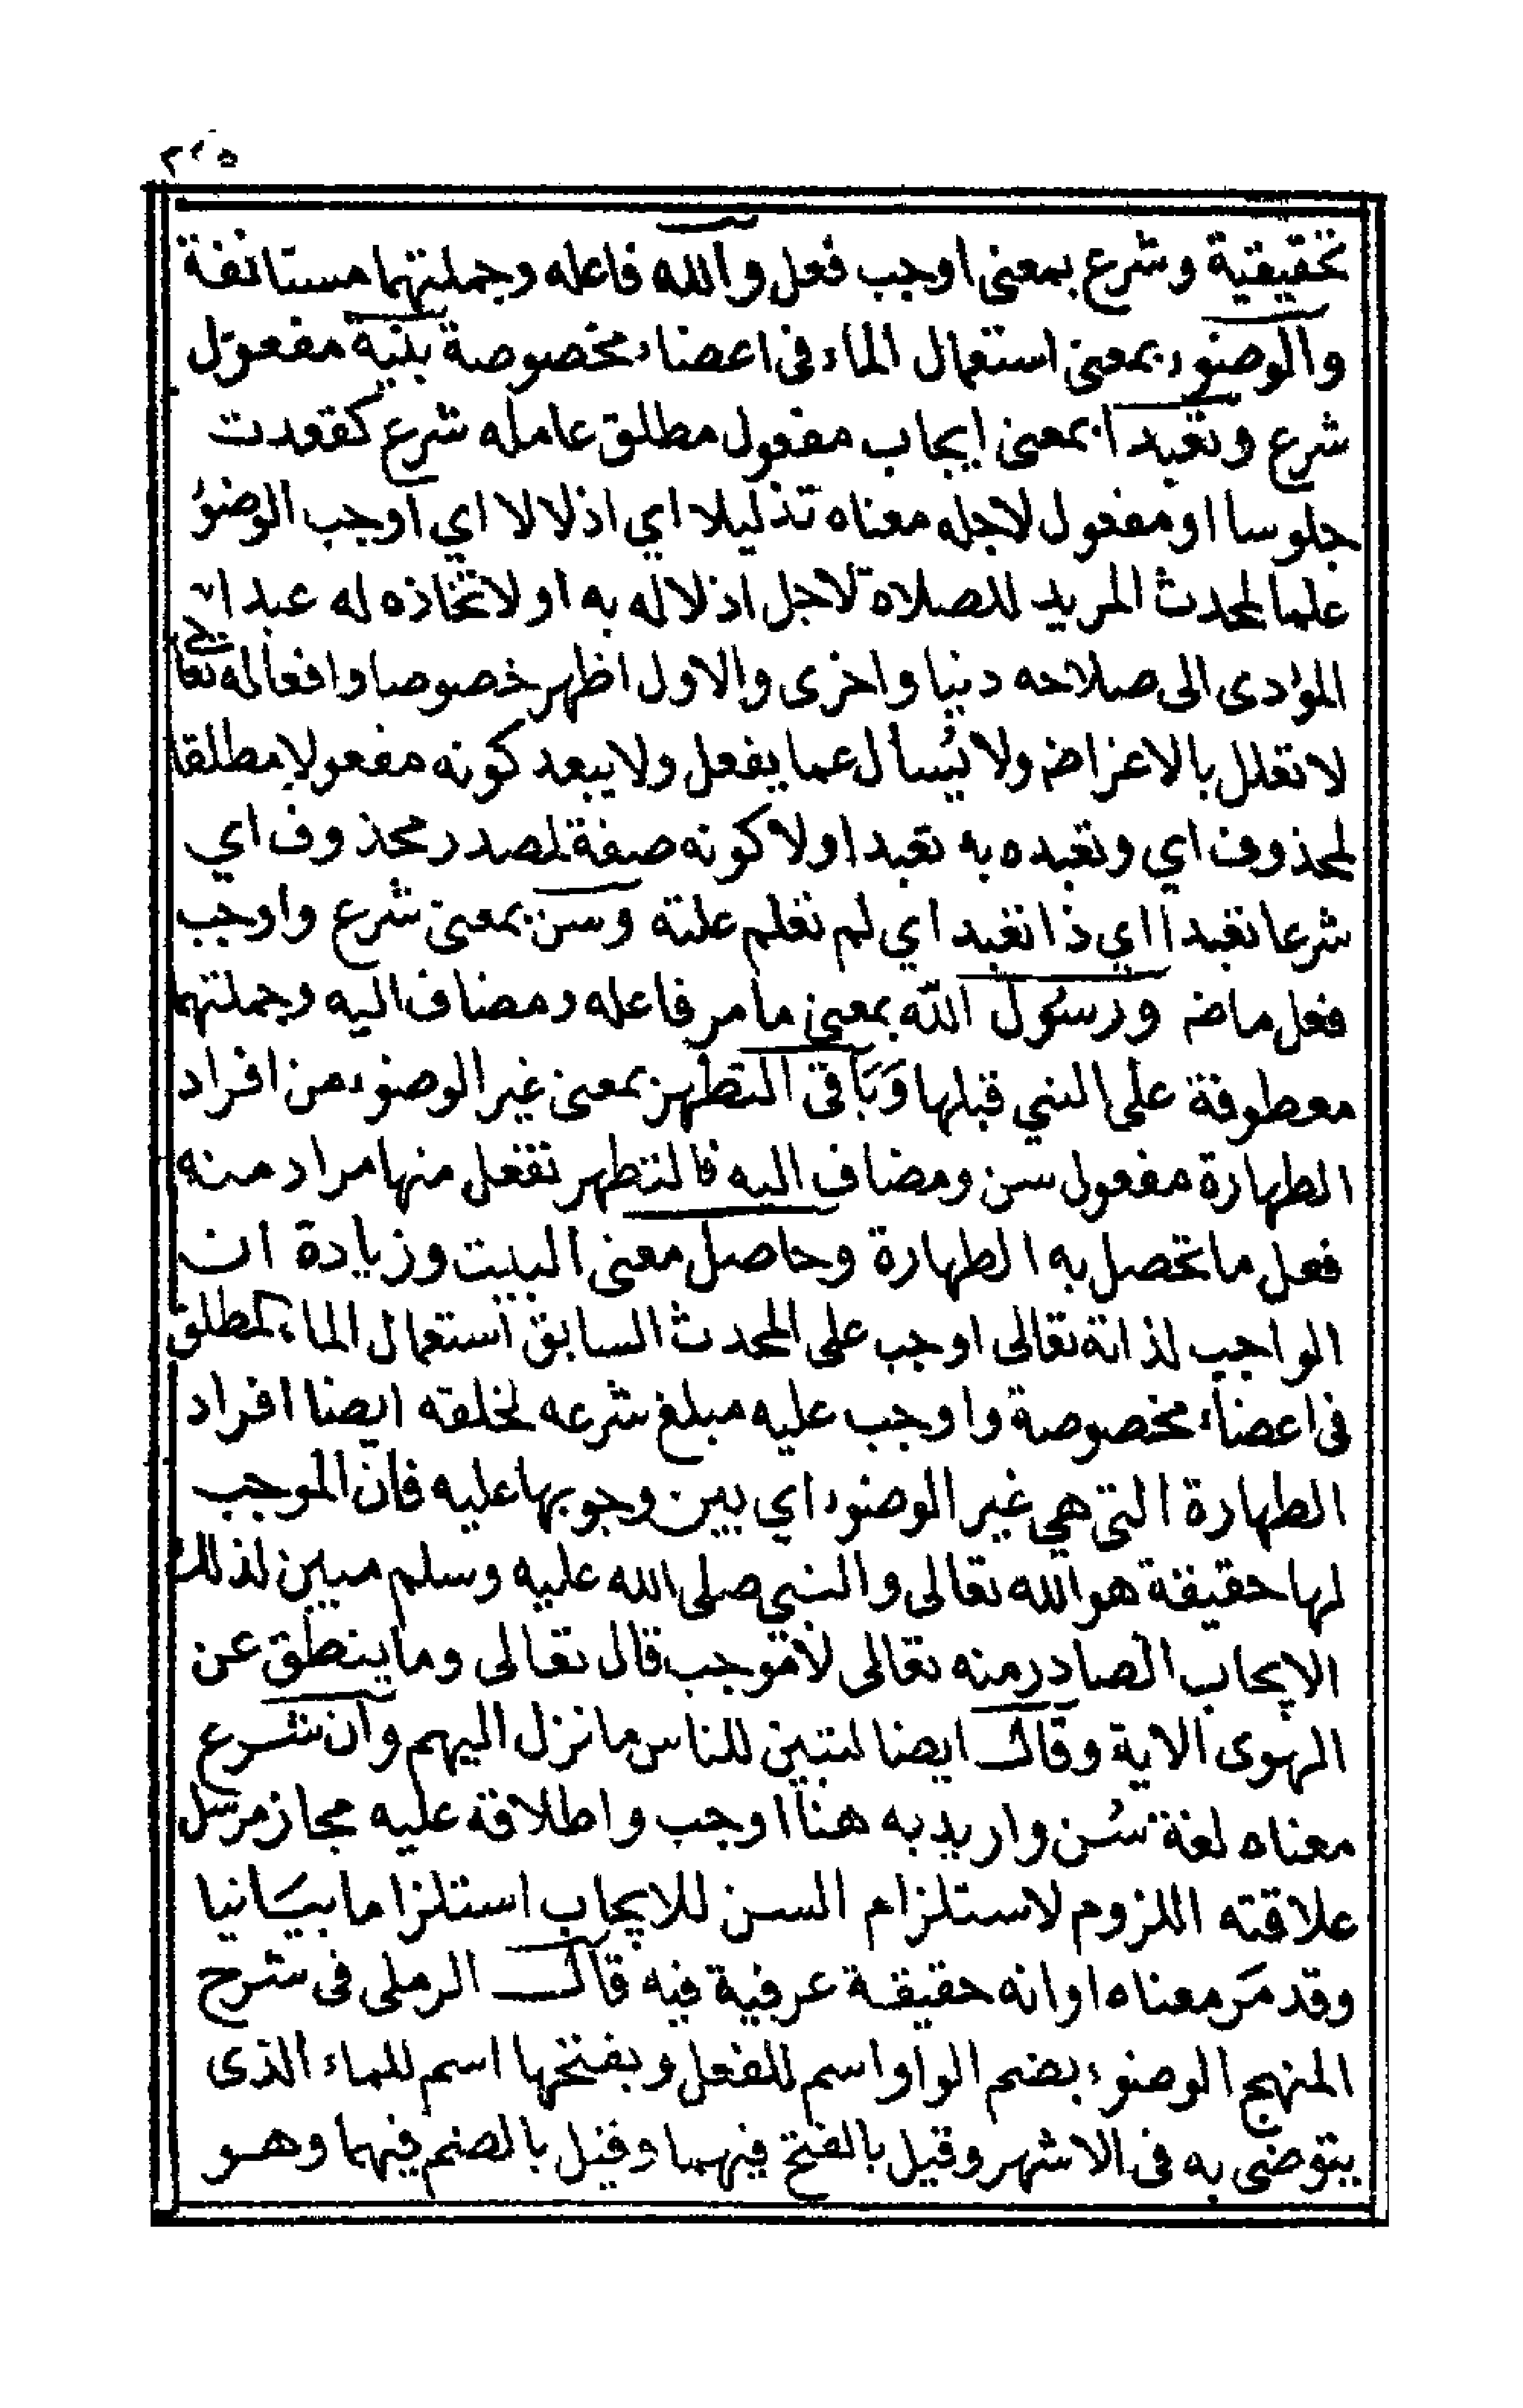 ٢٢٥
تحقيقية وشرع بمعنى اوجب فعل والله فاعله وجملتهما مستانفة
والوضوء بمعنى استعمال الماء فى اعضاء مخصوصة بنية مفعول
شرع وتعبدا بمعنى ايجاب مفعول مطلق عامله شرع كقعدت
جلوسا او مفعول لاجله معناه تذليلا اي اذلالا اي اوجب الوضوُ
علما لمحدث المريد للصلاة لاجل اذلاله به او لاتخاذه له عبدا
المؤدى الى صلاحه دنيا واخرى والاول اظهر خصوصا وافعاله تعالى
لا تعلل بالاغراض ولا يُسأل عما يفعل ولا يبعد كونه مفعولا مطلقا
لمحذوف اي وتعبده به تعبدا ولا كونه صفة لمصدر محذوف اي
شرعا تعبدا اي ذا تعبد اي لم تعلم علته وسن بمعنى شرع واوجب
فعل ماض ورسُول الله بمعنى ما مر فاعله ومضاف اليه وجملتهما
معطوفة على التي قبلها وَبَاقى التطهر بمعنى غير الوضوء من افراد
الطهارة مفعول سن ومضاف اليه فالتطهر تفعل منها مراد منه
فعل ما تحصل به الطهارة وحاصل معنى البيت وزيادة ان
الواجب لذاته تعالى اوجب على المحدث السابق استعمال الماء المطلق
فى اعضاء مخصوصة واوجب عليه مبلغ شرعه لخلقه ايضا افراد
الطهارة التى هي غير الوضوء اي بين وجوبها عليه فان الموجب
لها حقيقة هو الله تعالى والنبي صلى الله عليه وسلم مبين لذلك
الايجاب الصادر منه تعالى لا موجب قال تعالى وما ينطق عن
الهوى الاية وقال ايضا لتبين للناس ما نزل اليهم وان شرع
معناه لغة سُن واريد به هنا اوجب واطلاقه عليه مجاز مرسل
علاقته اللزوم لاستلزام السن للايجاب استلزاما بيَانيا
وقد مَر معناه او انه حقيقة عرفية فيه قال الرملى فى شرح
المنهج الوضوء بضم الواو اسم للفعل وبفتحها اسم للماء الذى
يتوضى به فى الاشهر وقيل بالفتح فيهما وقيل بالضم فيهما وهو